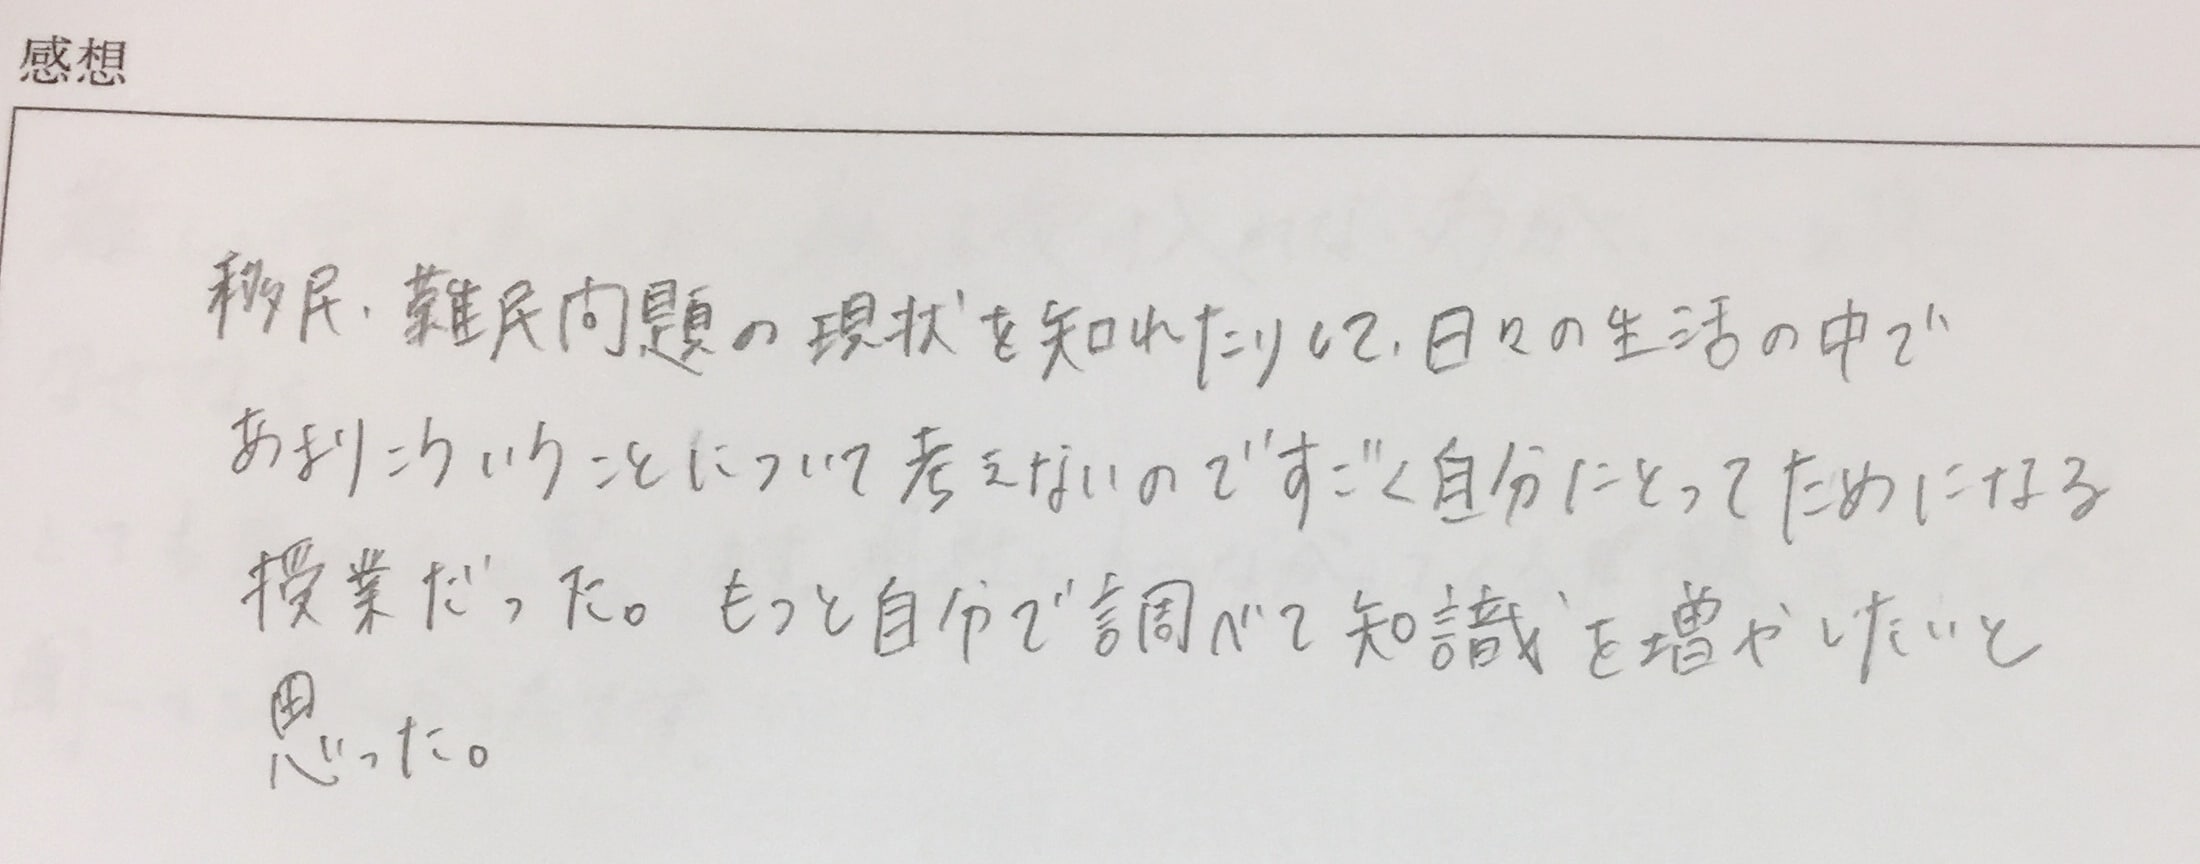 感想
移民・難民問題の現状を知れたりして、日々の生活の中で
あまりこういうことについて考えないのですごく自分にとってためになる
授業だった。もっと自分で調べて知識を増やしたいと
思った。